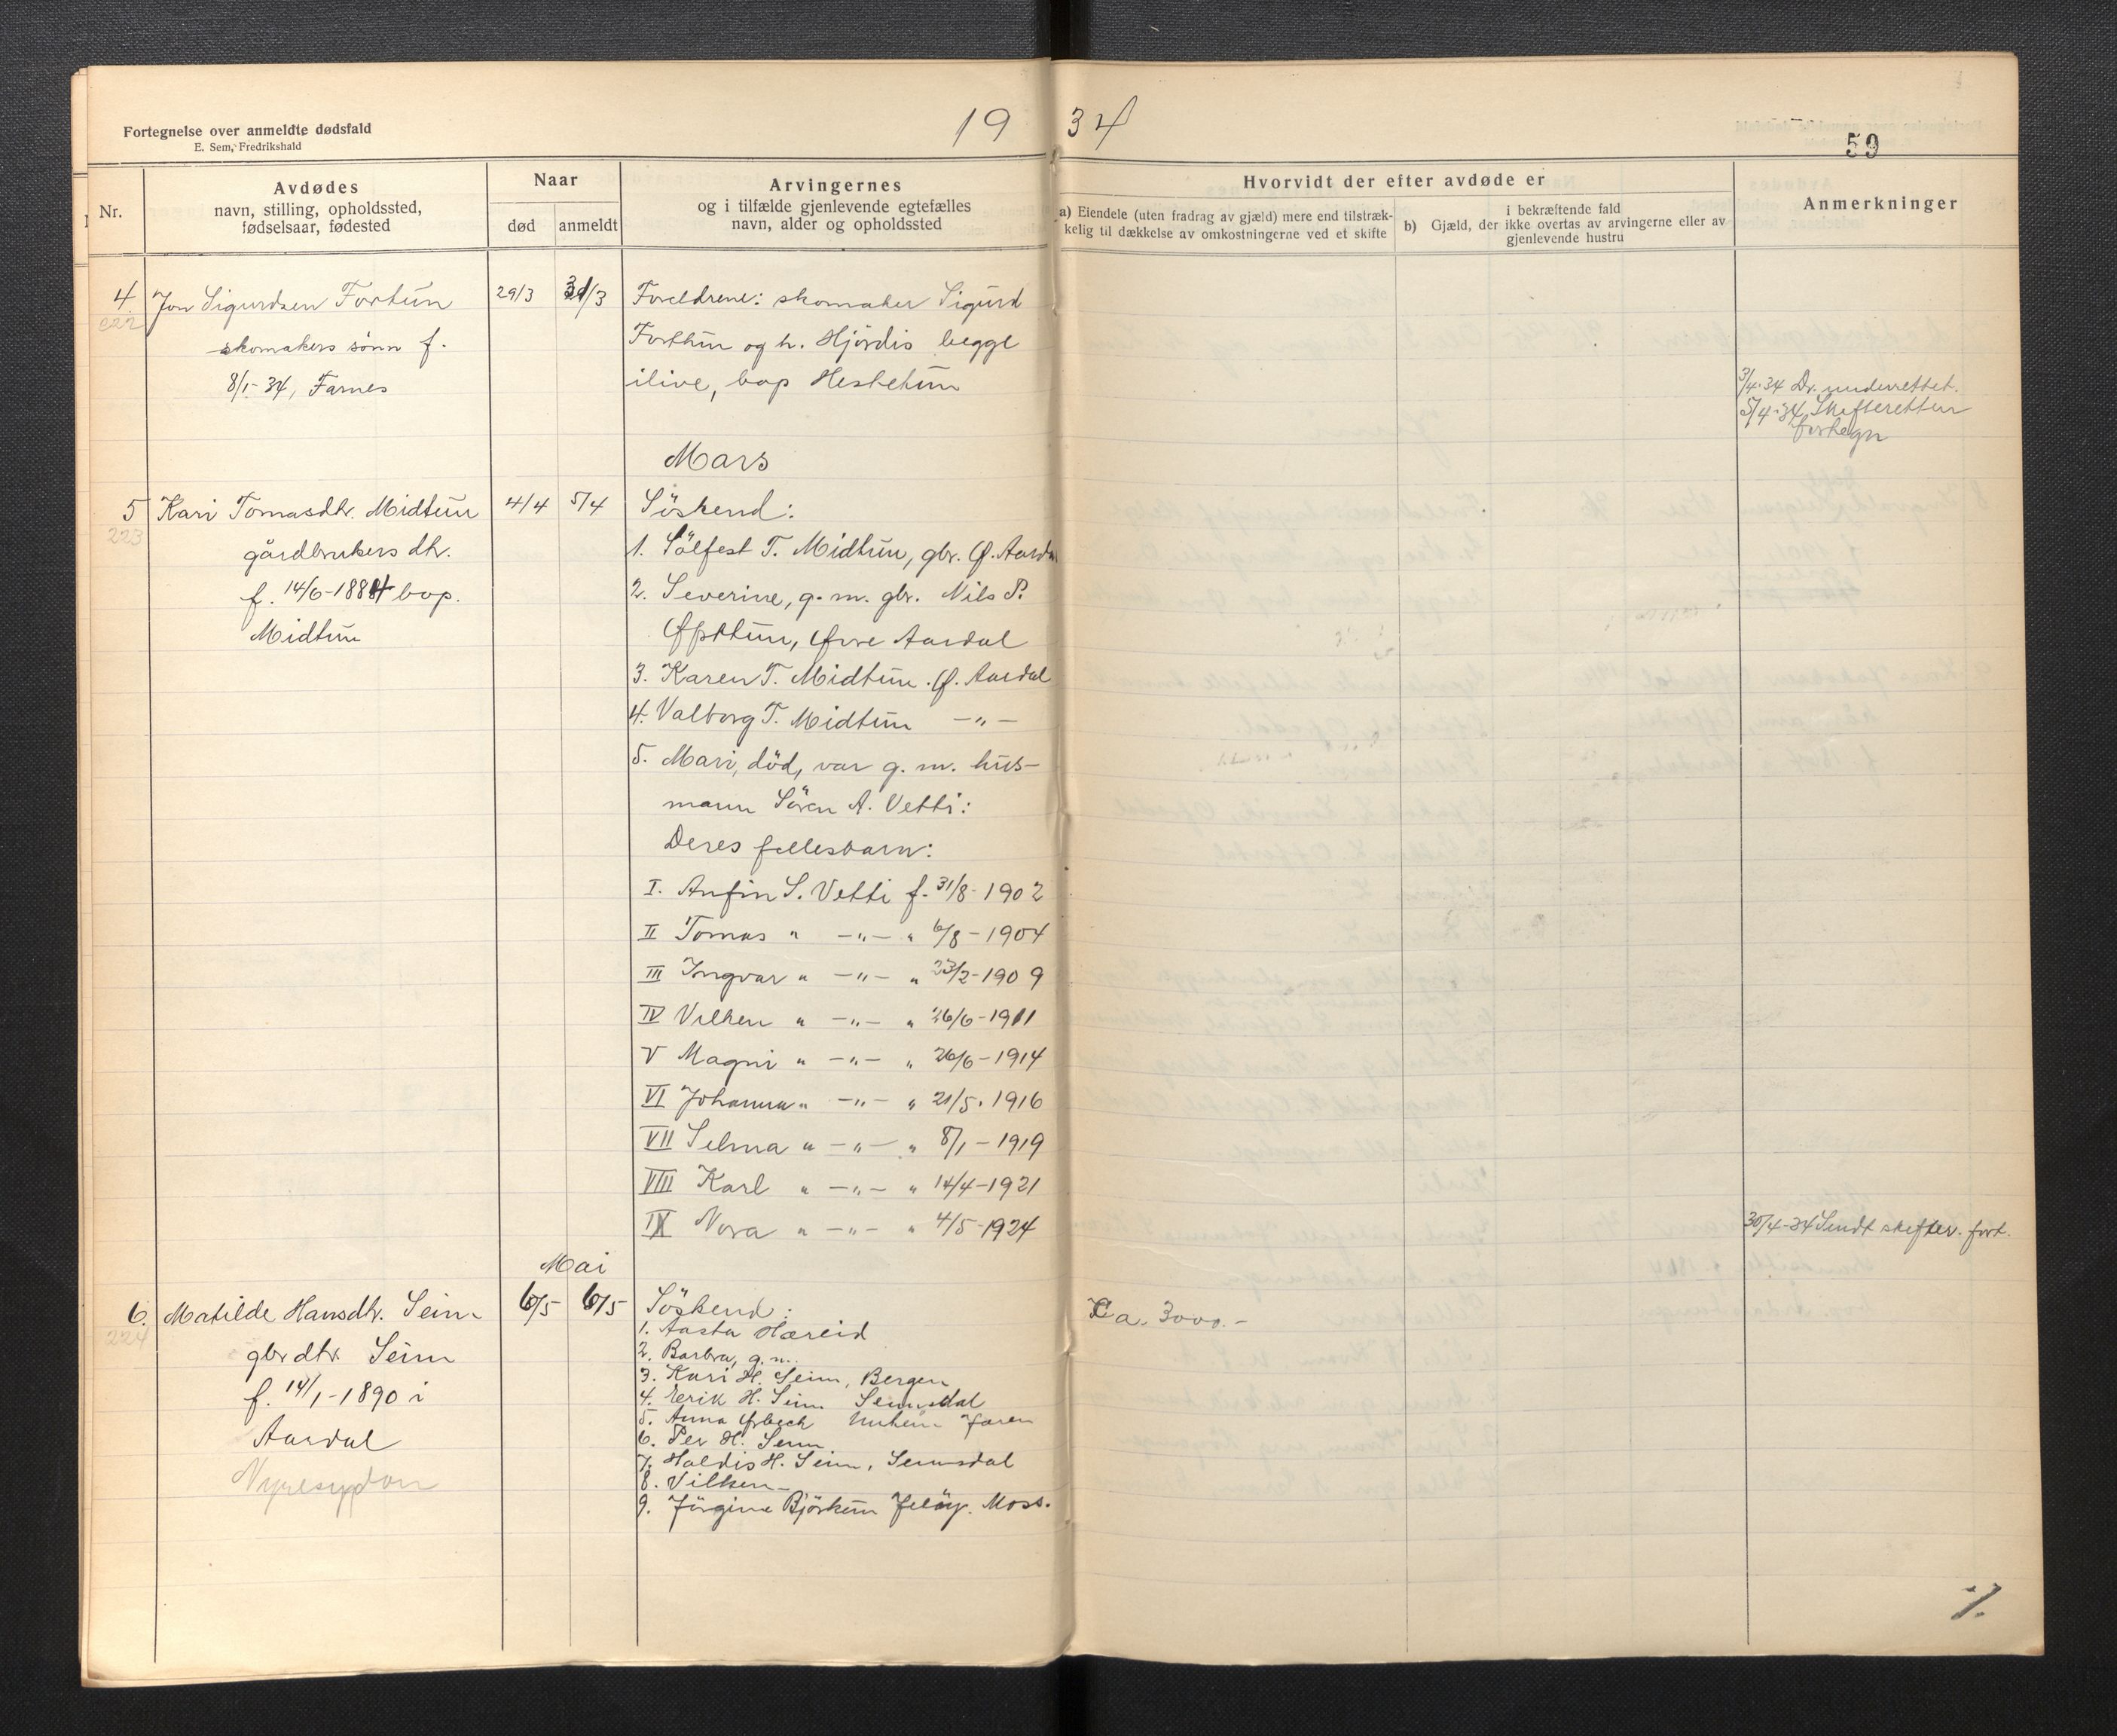 Fortegnelse over anmeldte dødsfald
E. Sem, Fredrikshald
19 34
59
Nr.
Avdødes
navn, stilling, opholdssted,
fødselsaar, fødested
Naar
død
anmeldt
Arvingernes
og i tilfælde gjenlevende egtefælles
navn, alder og opholdssted
Hvorvidt der efter avdøde er
a) Eiendele (uten fradrag av gjæld) mere end tilstræk-
kelig til dækkelse av omkostningerne ved et skifte
i bekræftende fald
b) Gjæld, der ikke overtas av arvingerne eller av
gjenlevende hustru
Anmerkninger
4. Jon Sigurdsen Fortun 29/3 31/3 Foreldrene: skomaker Sigurd
222 skomakers sønn f. Forthun og h. Hjördis begge
8/1-34, Farnes ilive, bop Hestetun
3/4-34 Dr. underrettet.
5/4-34 Skifteretten
fortegn
Mars
5 Kari Tomasdtr. Midtun 4/4 5/4 Söskend:
223 gårdbrukers dtr. 1. Sölfest T. Midtun, gbr. Ø. Aardal
f. 14/6-1884 bop. 2. Severine, g. m. gbr. Nils P.
Midtun Øpstun, Øvre Aardal
3. Karen T. Midtun. Ø. Aardal
4. Valborg T. Midtun -"-
5. Mari, död, var g. m. hus-
mann Sören A. Vetti:
Deres fellesbarn:
I. Anfin S. Vetti f. 31/8-1902
II Tomas " -"- " 6/8-1904
III Ingvar " -"- " 23/2-1909
IV Vilken " -"- " 26/6-1911
V Magni " -"- " 26/6-1914
VI Johanna " -"- " 21/5. 1916
VII Selma " -"- " 8/1-1919
VIII Karl " -"- " 14/4-1921
IX Nora " -"- " 4/5-1924
30/4-34 Sendt skifter. fort.
Mai
6. Matilde Hansdtr. Seim 6/5 6/5 Söskend: Ca. 3000.-
224 gbr dtr. Seim 1. Aasta Hæreid
f. 14/1-1890 i 2. Barbra, g. m.
Aardal 3. Kari H. Seim, Bergen
4. Eerik H. Seim Seimsdal
5. Anna
6. Per H. Seim
7. Haldis H. Seim, Seimsdal
8. Vilken
9. Jörgine Björkum Jelöy. Moss.